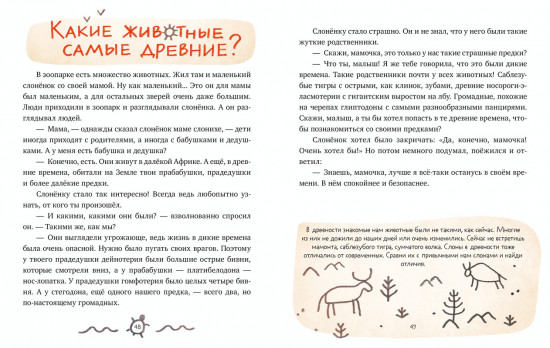 КАКИЕ ЖИВОТНЫЕ
САМЫЕ ДРЕВНИЕ?
В зоопарке есть множество животных. Жил там и маленький
слонёнок со своей мамой. Ну как маленький... Это он для мамы
был маленьким, а для остальных зверей очень даже большим.
Люди приходили в зоопарк и разглядывали слонёнка. А он раз-
глядывал людей.
— Мама, — однажды сказал слонёнок маме слонихе, — дети
иногда приходят с родителями, а иногда с бабушками и дедуш-
ками. А у меня есть бабушка и дедушка?
— Конечно, есть. Они живут в далёкой Африке. А ещё, в древ-
ние времена, обитали на Земле твои прабабушки, прадедушки
и более далёкие предки.
Слонёнку стало так интересно! Всегда ведь любопытно уз-
нать, от кого ты произошёл.
— И какими, какими они были? — взволнованно спросил
он. — Такими же, как мы?
— Они выглядели угрожающе, ведь жизнь в дикие времена
была очень опасной. Нужно было пугать своих врагов. Поэтому
у твоего прадедушки дейнотерия были большие острые бивни,
которые смотрели вниз, а у прабабушки — платибелодона —
нос-лопатка. У прадедушки гомфотерия было целых четыре бив-
ня. А у стегодона, ещё одного нашего предка, — всего два, но
по-настоящему громадных.
48
Слонёнку стало страшно. Он и не знал, что у него были такие
жуткие родственники.
— Скажи, мамочка, это только у нас такие страшные предки?
— Что ты, малыш! Я же тебе говорила, что это были дикие
времена. Такие родственники почти у всех животных! Саблезу-
бые тигры с острыми, как клинок, зубами, древние носороги-э-
ласмотерии с гигантским выростом на лбу. Громадные, похожие
на черепах глиптодоны с самыми разнообразными панцирями.
Скажи, малыш, а ты бы хотел попасть в те древние времена, что-
бы познакомиться со своими предками?
Слонёнок хотел было закричать: «Да, конечно, мамочка!
Очень хотел бы!» Но потом немного подумал, поёжился и от-
ветил:
— Знаешь, мамочка, лучше я всё-таки останусь в своём веке.
В нём спокойнее и безопаснее.
В древности знакомые нам животные были не такими, как сейчас. Многие
из них не дожили до наших дней или очень изменились. Сейчас не встретишь
мамонта, саблезубого тигра, сумчатого волка. Слоны в древности тоже
отличались от современных. Сравни их с привычными нам слонами и найди
отличия.
49